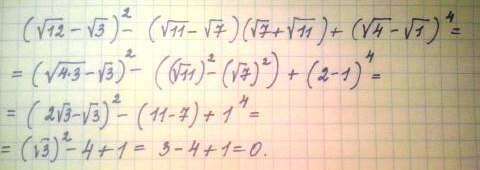 (√12 − √3)² − (√11 − √7)(√7 + √11) + (√4 − √1)⁴ =
= (√4·3 − √3)² − ((√11)² − (√7)²) + (2 − 1)⁴ =
= (2√3 − √3)² − (11 − 7) + 1⁴ =
= (√3)² − 4 + 1 = 3 − 4 + 1 = 0.